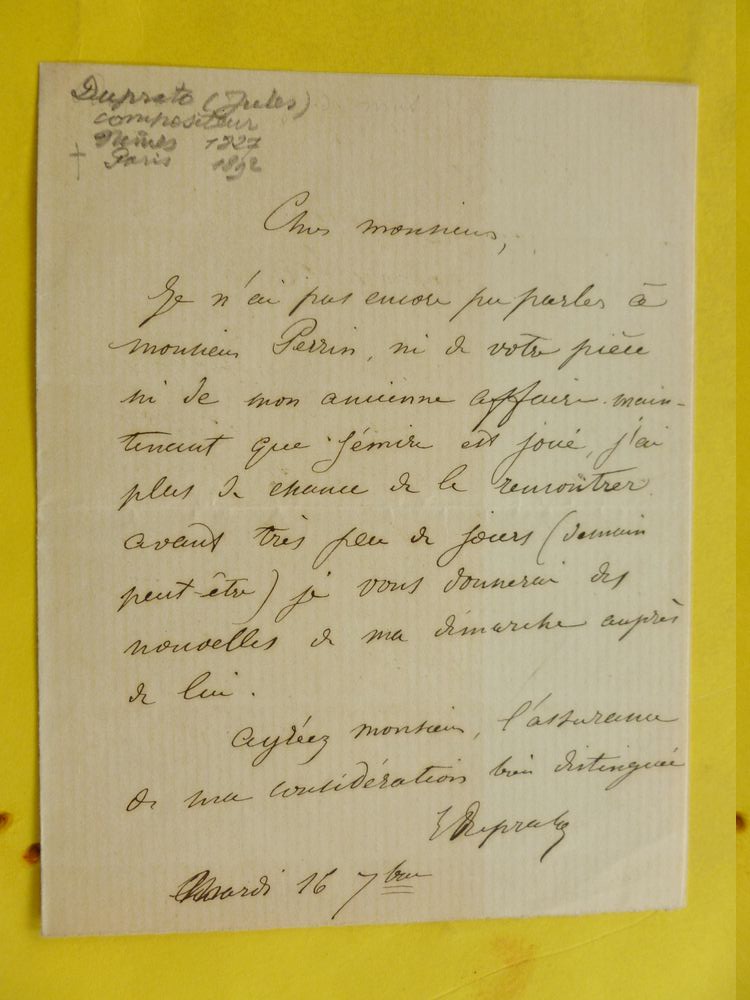 Duprato (Jules)
compositeur
Nîmes 1827
† Paris 1892
Cher monsieur,
Je n'ai pas encore pu parler à
monsieur Perrin, ni de votre pièce
ni de mon ancienne affaire. main-
tenant que est joué, j'ai
plus de chance de le rencontrer
avant très peu de jours (demain
peut-être) je vous donnerai des
nouvelles de ma démarche auprès
de lui.
agréez monsieur, l'assurance
de ma considération bien distinguée
J Duprato
Mardi 16 7bre